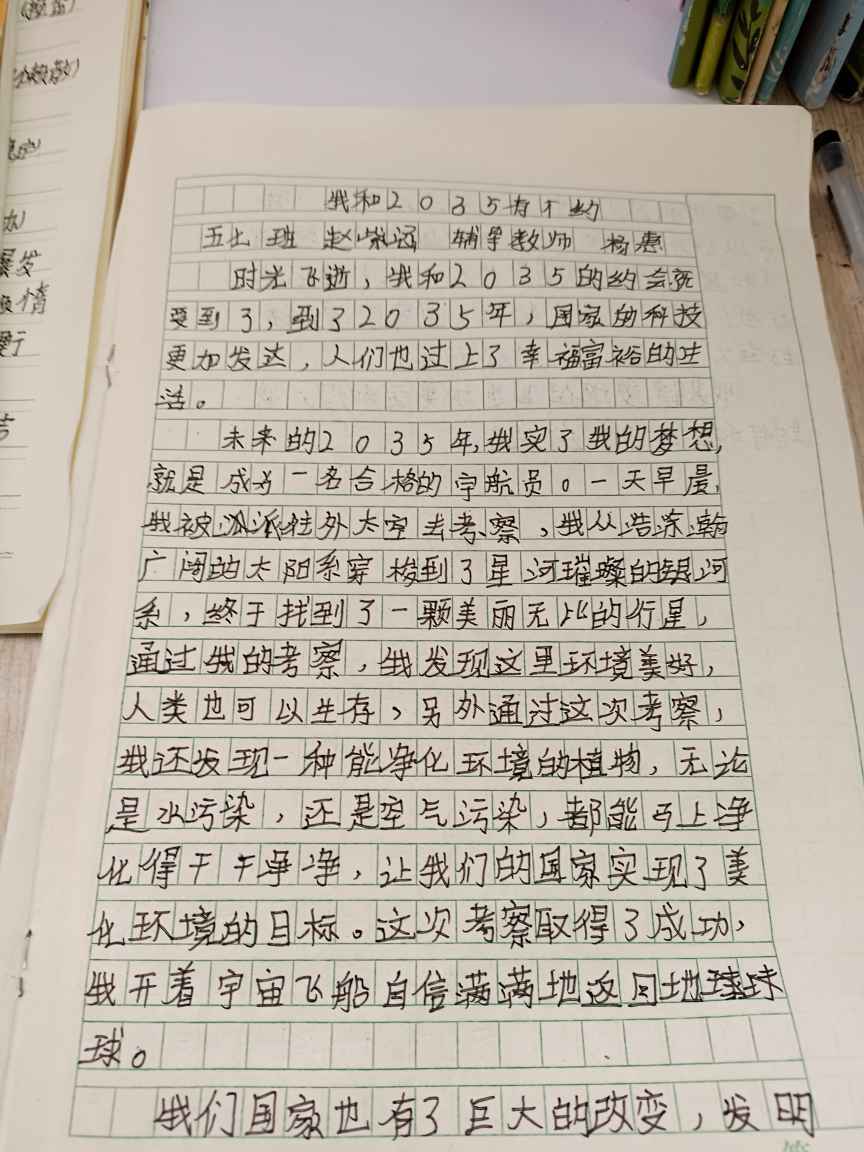 我和2035有个约
五七班 赵 辅导教师 杨惠
时光飞逝，我和2035的约会就
要到了，到了2035年，国家的科技
更加发达，人们也过上了幸福富裕的生
活。
未来的2035年,我实了我的梦想,
就是成为一名合格的宇航员。一天早晨,
我被派往外太空去考察，我从浩瀚
广阔的太阳系穿梭到了星河璀璨的银河
系，终于找到了一颗美丽无比的行星，
通过我的考察，我发现这里环境美好，
人类也可以生存、另外通过这次考察，
我还发现一种能净化环境的植物，无论
是水污染，还是空气污染，都能马上净
化得干干净净，让我们的国家实现了美
化环境的目标。这次考察取得了成功，
我开着宇宙飞船自信满满地返回地球
球。
我们国家也有了巨大的改变，发明
爆发